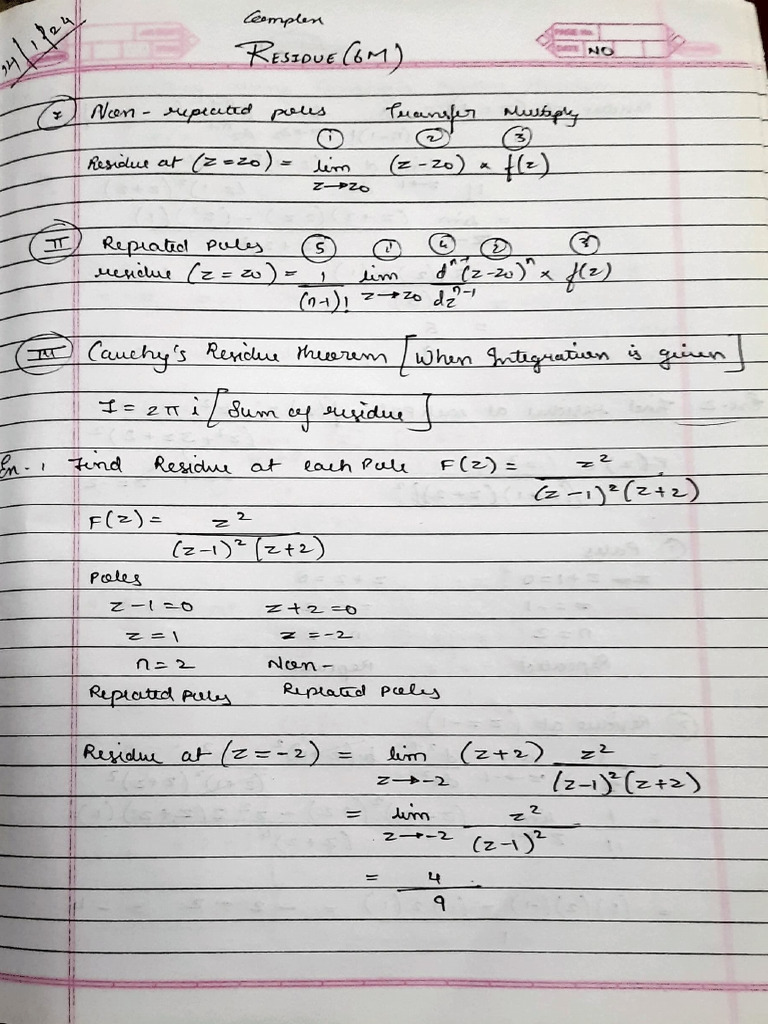 24/1/24
Complex
RESIDUE (6M)
PAGE No.
DATE NO
I Non-repeated poles Transfer Multiply
① ② ③
Residue at (z=z0) = lim (z-z0) x f(z)
z→z0
II Repeated poles ⑤ ① ④ ② ③
residue (z=z0) = 1 lim d^n-1 (z-z0)^n x f(z)
(n-1)! z→z0 dz^n-1
III Cauchy's Residue theorem [When Integration is given]
I = 2πi [Sum of residue]
En-1 Find Residue at each Pole F(z) = z²
(z-1)²(z+2)
F(z) = z²
(z-1)²(z+2)
Poles
z-1=0 z+2=0
z=1 z=-2
n=2 Non-
Repeated Poles Repeated poles
Residue at (z=-2) = lim (z+2) z²
z→-2 (z-1)²(z+2)
= lim z²
z→-2 (z-1)²
= 4
9